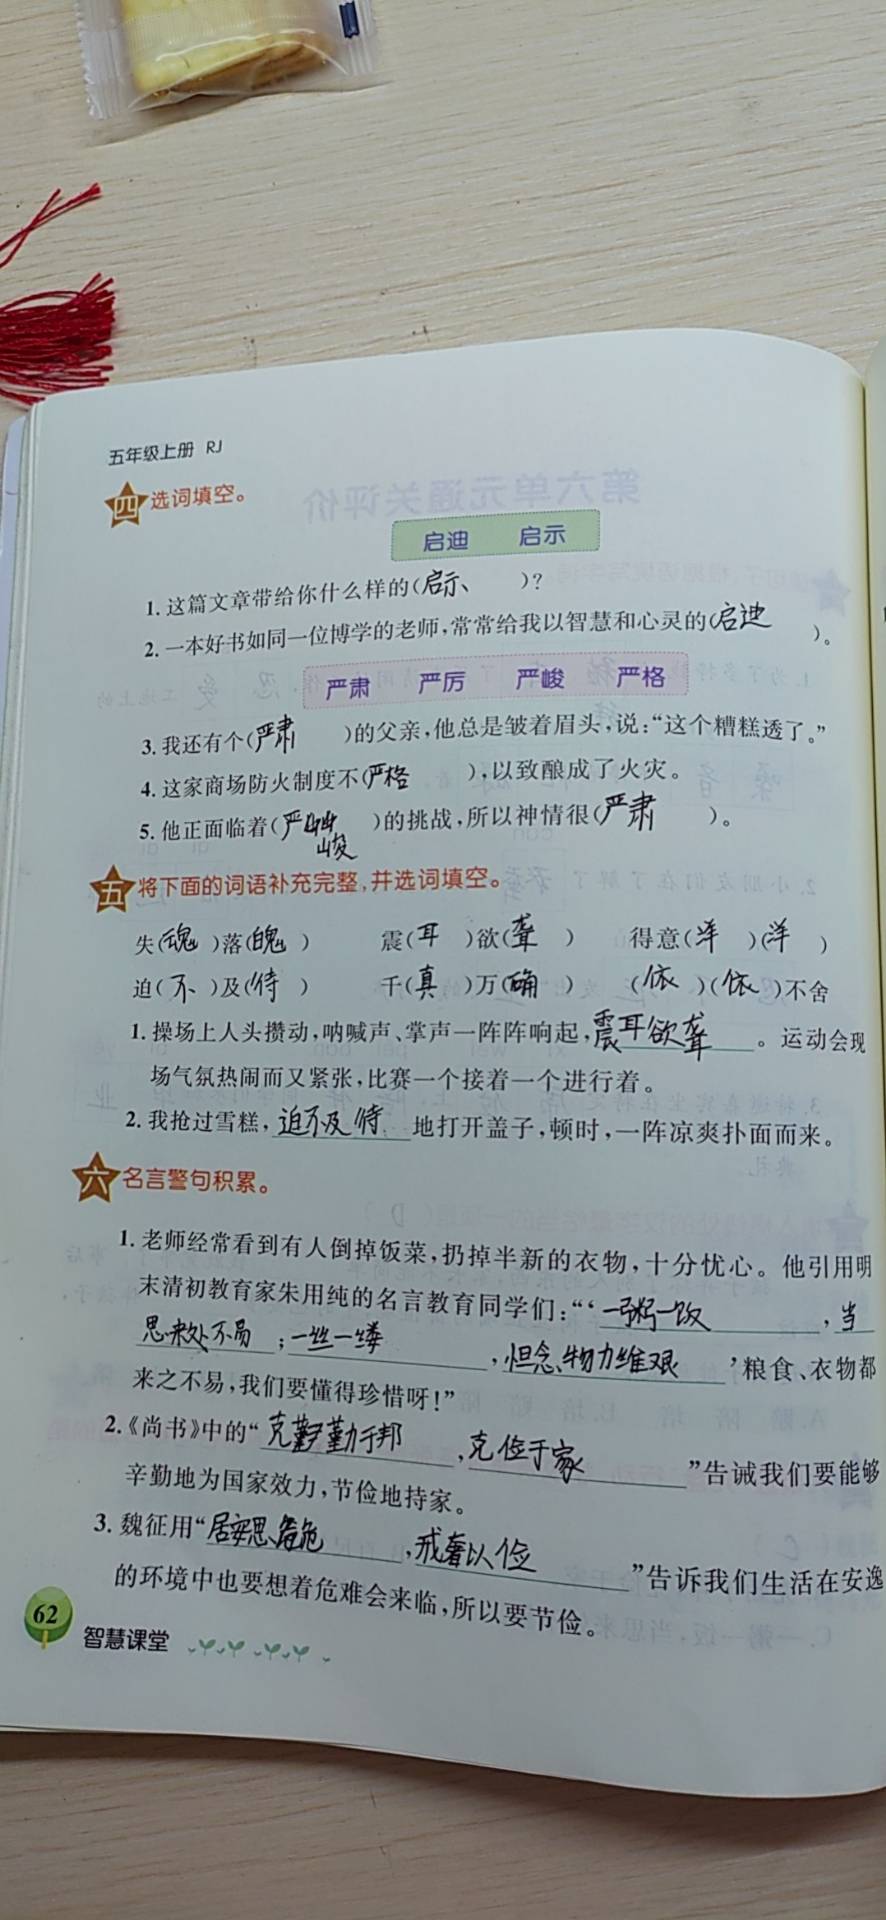 五年级上册 RJ
四 选词填空。
启迪 启示
1. 这篇文章带给你什么样的(启示、)?
2. 一本好书如同一位博学的老师,常常给我以智慧和心灵的(启迪)。
严肃 严厉 严峻 严格
3. 我还有个(严肃)的父亲,他总是皱着眉头,说:“这个糟糕透了。”
4. 这家商场防火制度不(严格),以致酿成了火灾。
5. 他正面临着(严峻)的挑战,所以神情很(严肃)。
五 将下面的词语补充完整,并选词填空。
失(魂)落(魄) 震(耳)欲(聋) 得意(洋)(洋)
迫(不)及(待) 千(真)万(确) (依)(依)不舍
1. 操场上人头攒动,呐喊声、掌声一阵阵响起,震耳欲聋。运动会现
场气氛热闹而又紧张,比赛一个接着一个进行着。
2. 我抢过雪糕,迫不及待地打开盖子,顿时,一阵凉爽扑面而来。
六 名言警句积累。
1. 老师经常看到有人倒掉饭菜,扔掉半新的衣物,十分忧心。他引用明
末清初教育家朱用纯的名言教育同学们:“‘一粥一饭,当
思来处不易;一丝一缕,恒念物力维艰’粮食、衣物都
来之不易,我们要懂得珍惜呀!”
2.《尚书》中的“克勤于邦,克俭于家”告诫我们要能够
辛勤地为国家效力,节俭地持家。
3. 魏征用“居安思危,戒奢以俭”告诉我们生活在安逸
的环境中也要想着危难会来临,所以要节俭。
62
智慧课堂